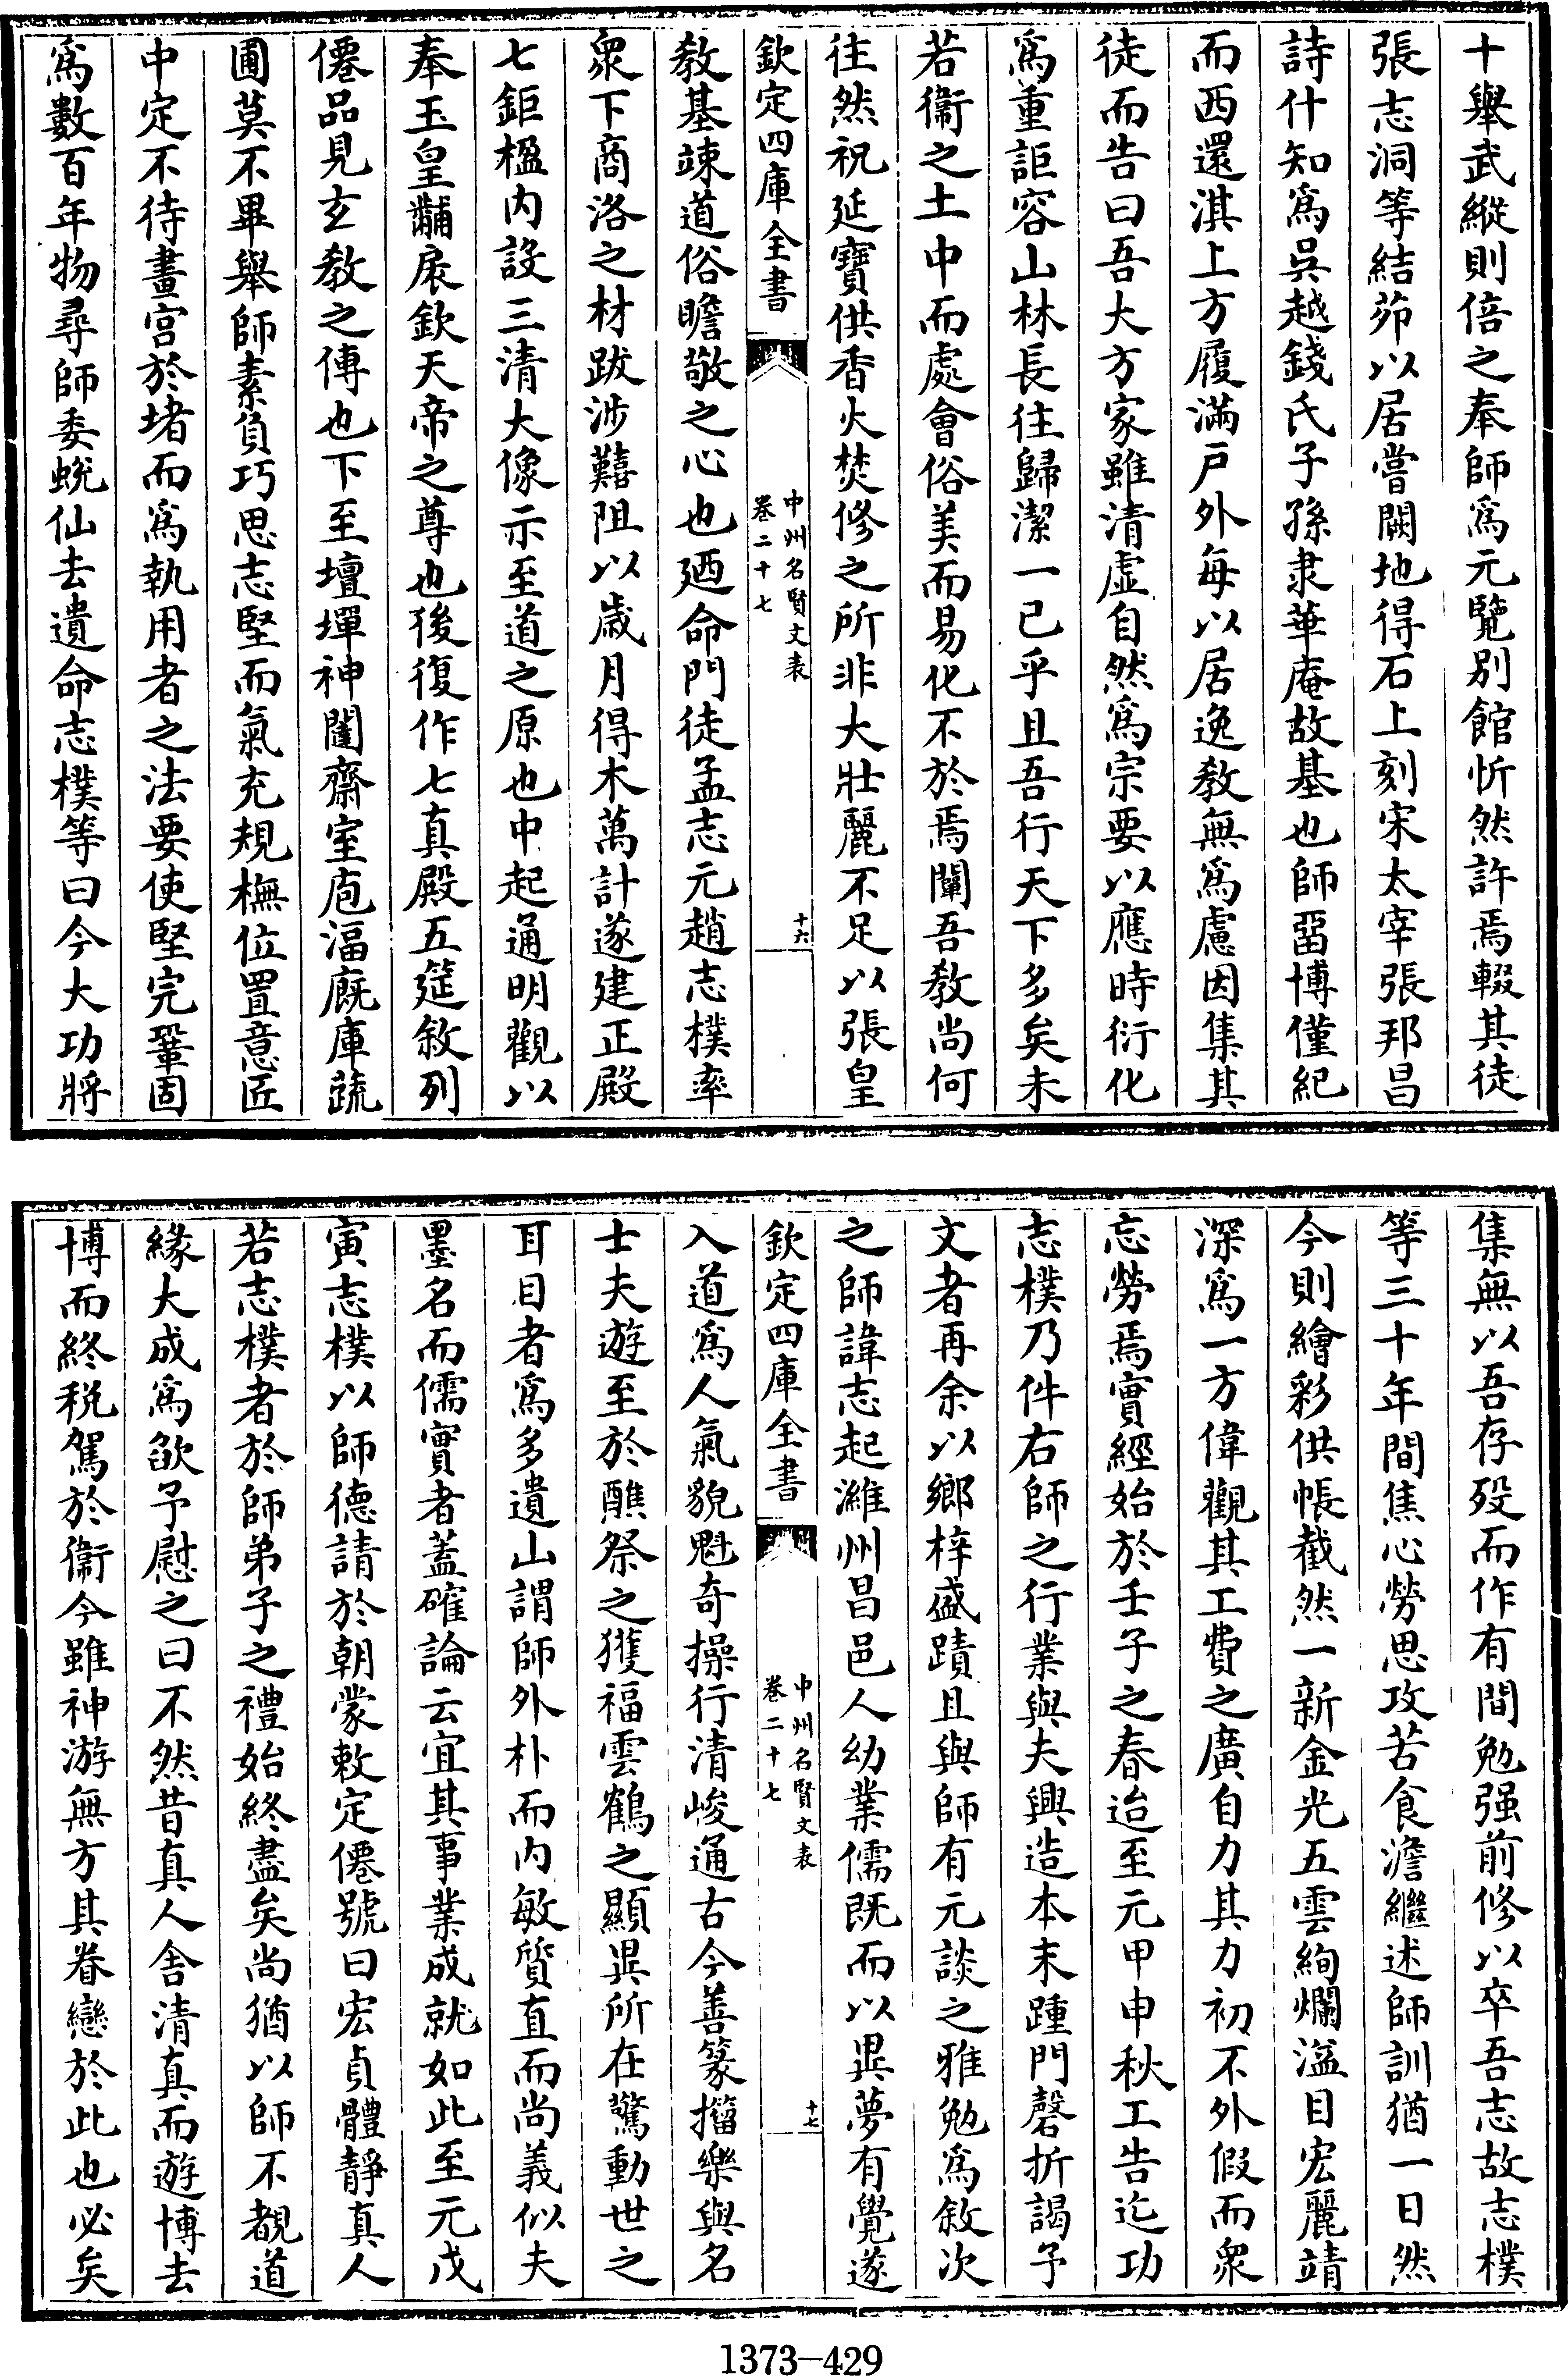 十舉武縱則倍之奉師爲元覽别館忻然許焉輟其徒
張志洞等結茆以居嘗闕地得石上刻宋太宰張邦昌
詩什知爲吳越錢氏子孫隶華庵故基也師畱博僅紀
而西還淇上方履滿戸外每以居逸教無爲慮因集其
徒而告曰吾大方家雖清虚自然爲宗要以應時衍化
爲重詎容山林長往歸潔一已乎且吾行天下多矣未
若衞之土中而處會俗美而易化不於焉闡吾教尚何
往然祝延寶供香火焚修之所非大壯麗不足以張皇
欽定四庫全書
中州名賢文表
卷二十七
十六
教基竦道俗瞻敬之心也廼命門徒孟志元趙志樸率
衆下商洛之材跋涉囏阻以歲月得木萬計遂建正殿
七鉅楹内設三清大像示至道之原也中起通明觀以
奉玉皇黼扆欽天帝之尊也後復作七真殿五筵敘列
僊品見玄教之傳也下至壇墠神闥齋室庖湢廐庫蔬
圃莫不畢舉師素負巧思志堅而氣充規橅位置意匠
中定不待畫宫於堵而爲執用者之法要使堅完鞏固
爲數百年物尋師委蜕仙去遺命志樸等曰今大功將
集無以吾存殁而作有間勉强前修以卒吾志故志樸
等三十年間焦心勞思攻苦食澹繼述師訓猶一日然
今則繪彩供帳截然一新金光五雲絢爛溢目宏麗靖
深爲一方偉觀其工費之廣自力其力初不外假而衆
忘勞焉實經始於壬子之春迨至元甲申秋工告迄功
志樸乃件右師之行業與夫興造本末踵門磬折謁予
文者再余以鄉梓盛蹟且與師有元談之雅勉爲敘次
之師諱志起濰州昌邑人幼業儒既而以異夢有覺遂
欽定四庫全書
中州名賢文表
卷二十七
十七
入道爲人氣貌魁奇操行清峻通古今善篆籀樂與名
士夫遊至於醮祭之獲福雲鶴之顯異所在驚動世之
耳目者爲多遺山謂師外朴而内敏質直而尚義似夫
墨名而儒實者蓋確論云宜其事業成就如此至元戊
寅志樸以師德請於朝蒙敕定僊號曰宏貞體靜真人
若志樸者於師弟子之禮始終盡矣尚猶以師不覩道
緣大成爲歉予慰之曰不然昔真人舍清真而遊博去
博而終税駕於衞今雖神游無方其眷戀於此也必矣
1373-429